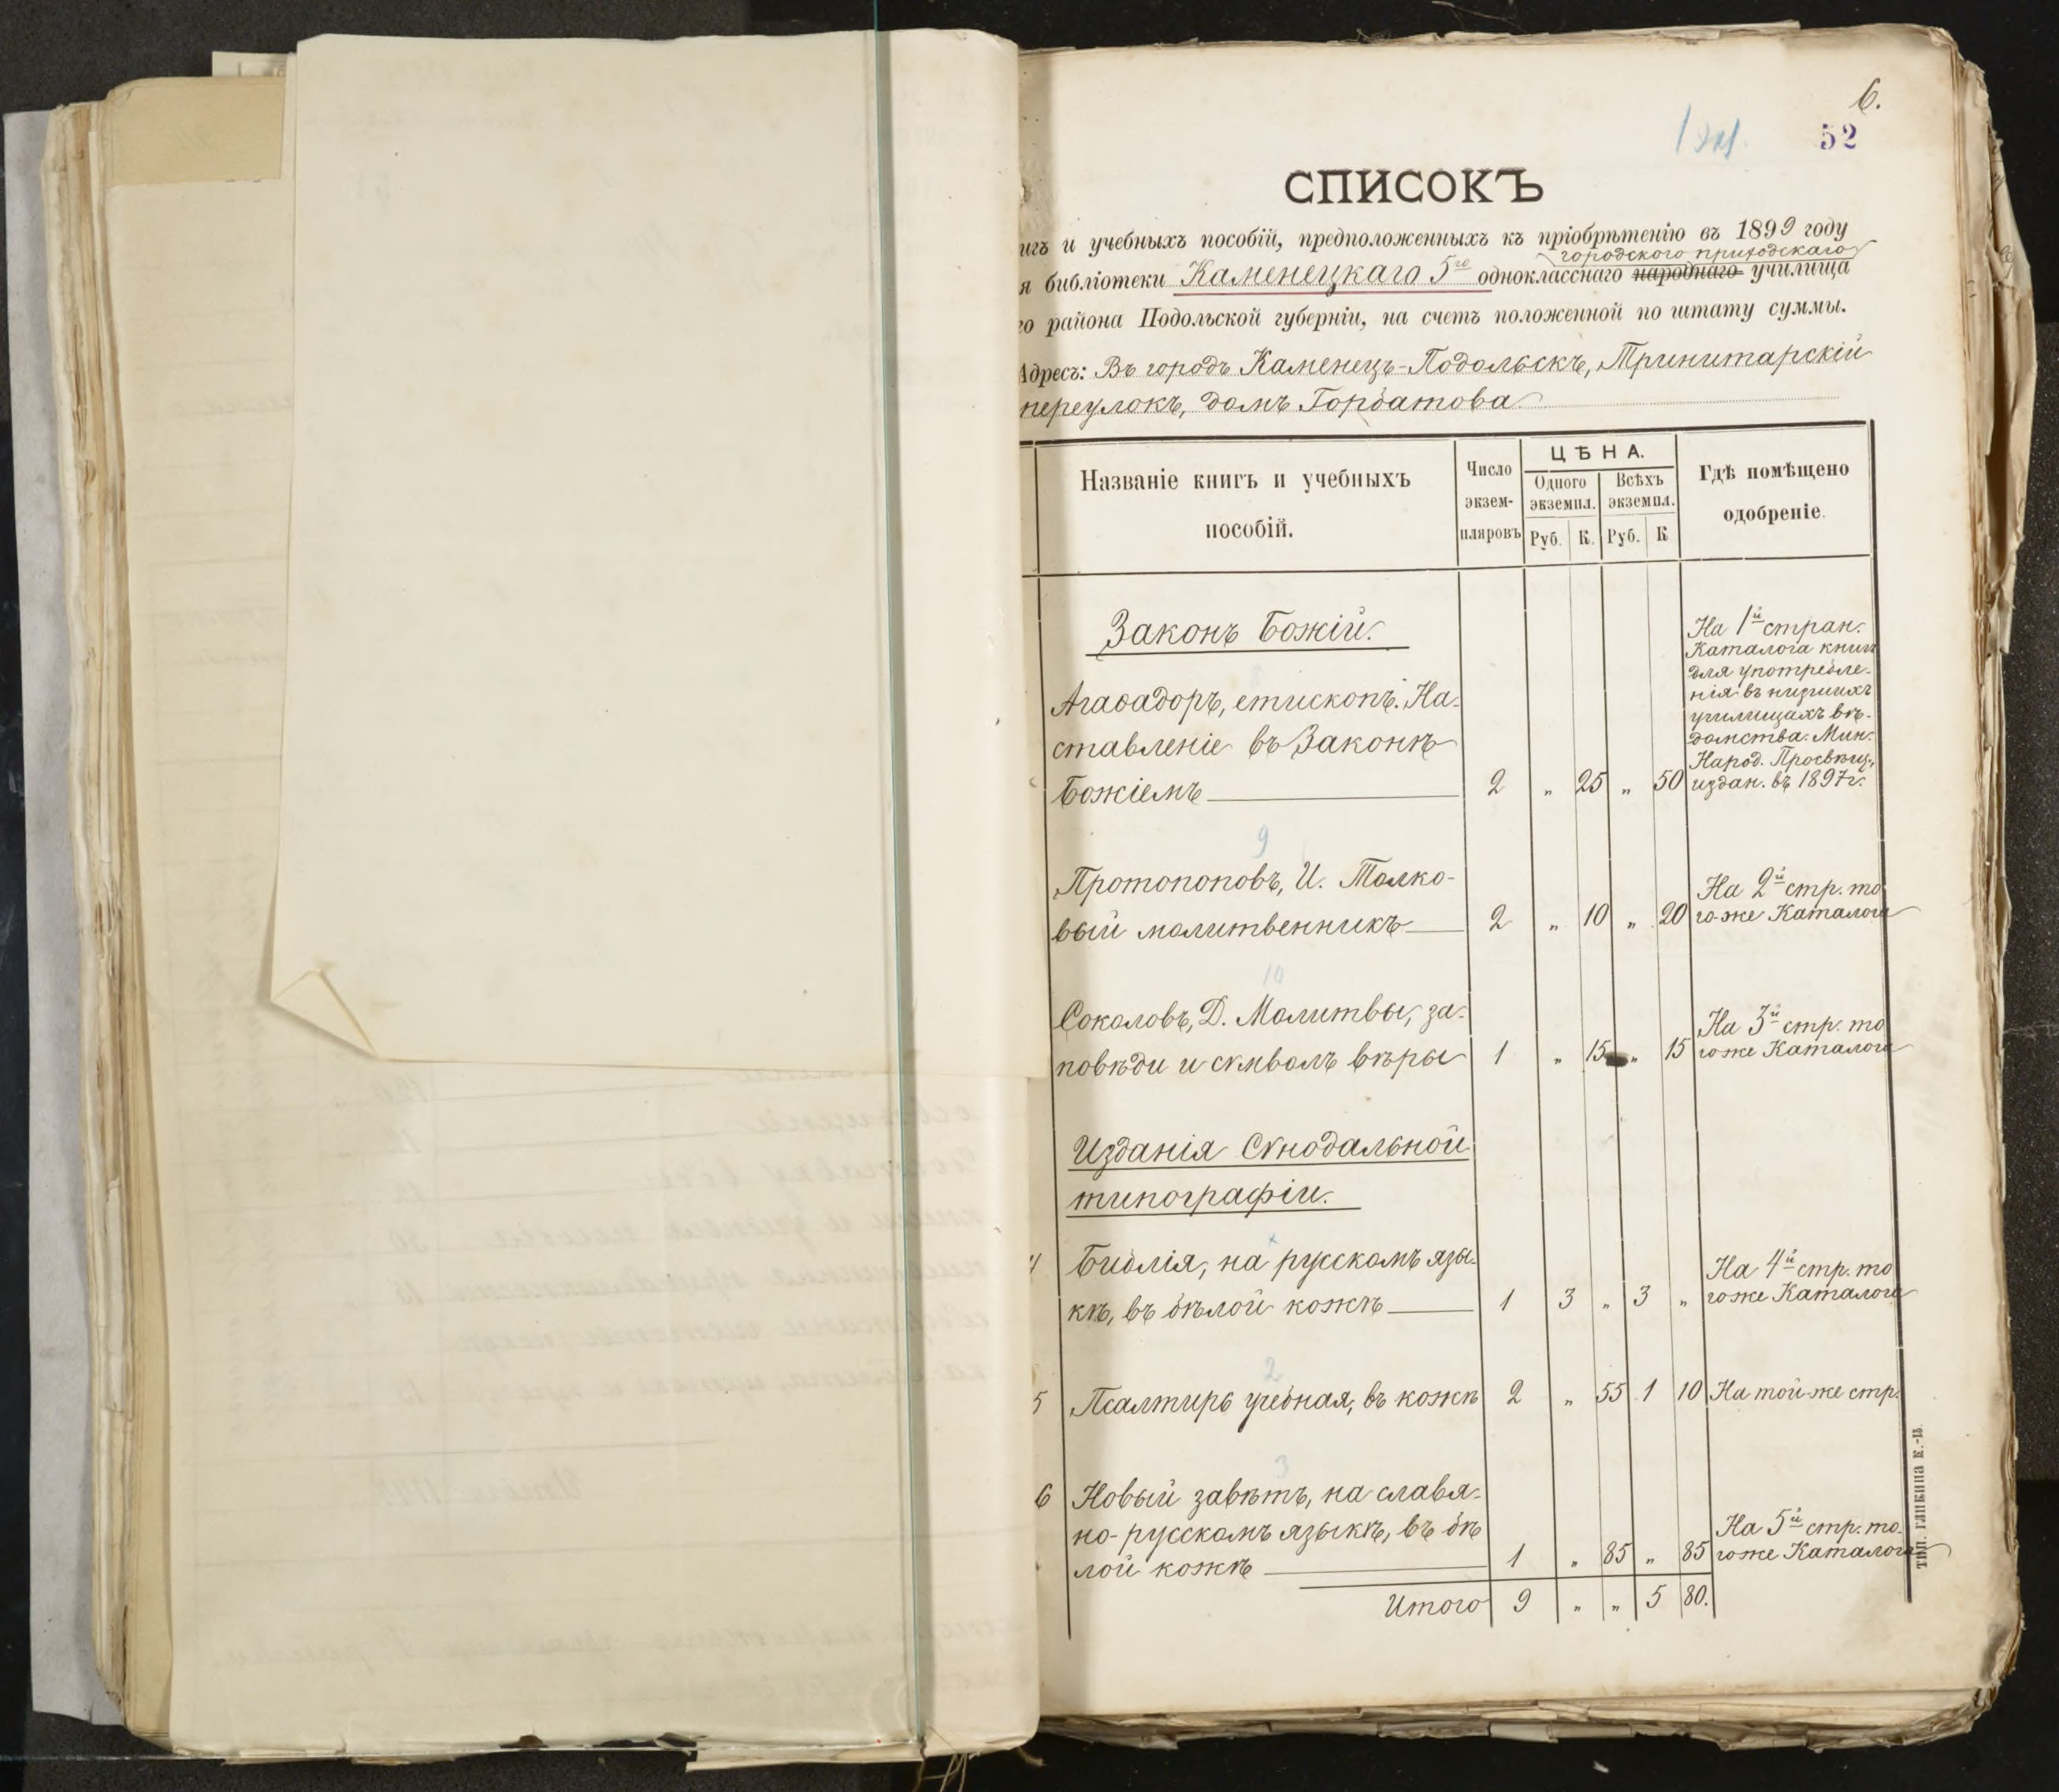 6.
52
СПИСОКЪ
игъ и учебныхъ пособій, предположенныхъ къ пріобрѣтенію въ 1899 году
городского приходскаго
я библіотеки Каменецкаго 5го однокласснаго народнаго училища
го района Подольской губерніи, на счетъ положенной по штату суммы.
Адресъ: Въ городъ Каменецъ-Подольскъ, Тринитарскій
переулокъ, домъ Горбатова
Названіе книгъ и учебныхъ пособій.
Число экзем-пляровъ
ЦѢНА.
Одного экземпл.
Всѣхъ экземпл.
Руб. К. Руб. К
Гдѣ помѣщено одобреніе.
Законъ Божій.
На 1й стран.
Каталога книгъ
для употребле-
нія въ низшихъ
училищахъ вѣ-
домства Мин.
Народ. Просвѣщ.,
издан. въ 1897г.
8
Агаѳадоръ, епископъ. На-
ставленіе въ Законѣ
Божіемъ 2 „ 25 „ 50
9
Протопоповъ, И. Толко-
вый молитвенникъ 2 „ 10 „ 20
На 2й стр. то
го-же Каталога
10
Соколовъ, Д. Молитвы, за-
повѣди и сѵмволъ вѣры 1 „ 15 „ 15
На 3й стр. то
гоже Каталога
Изданія Сѵнодальной
типографіи.
4 Библія, на русскомъ язы-
кѣ, въ бѣлой кожѣ 1 3 „ 3 „
На 4й стр. то
гоже Каталога
2
5 Псалтирь учебная, въ кожѣ 2 „ 55 1 10 На той-же стр.
3
6 Новый завѣтъ, на славя-
но-русскомъ языкѣ, въ бѣ
лой кожѣ 1 „ 85 „ 85
На 5й стр. то-
гоже Каталога
Итого 9 „ „ 5 80.
ТИП. ГЛИКИНА К.-П.